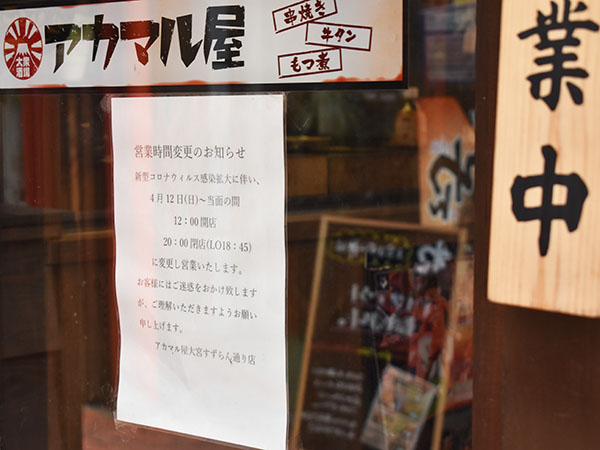 大衆酒場
アカマル屋
串焼き
牛タン
もつ煮
営業時間変更のお知らせ
新型コロナウィルス感染拡大に伴い、
4月12日(日)～当面の間
12：00開店
20：00閉店(LO18：45)
に変更し営業いたします。
お客様にはご迷惑をおかけ致します
が、ご理解いただきますようお願い
申し上げます。
アカマル屋大宮すずらん通り店
業中